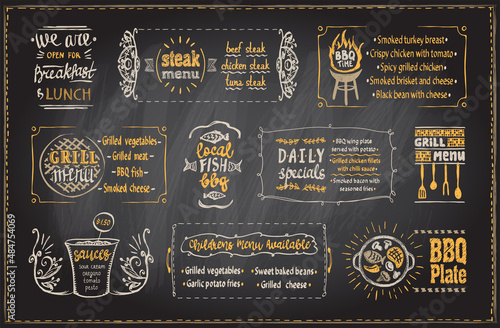 we are
OPEN FOR
breakfast
& LUNCH
steak
menu
beef steak
chicken steak
tuna steak
BBQ
TIME
• Smoked turkey breast
• Crispy chicken with tomato
• Spicy grilled chicken
• Smoked brisket and cheese
• Black bean with cheese
GRILL
menu
• Grilled vegetables
• Grilled meat
• BBQ fish
• Smoked cheese
local
FISH
bbq
DAILY
specials
• BBQ wing plate
served with potato
• Grilled chicken filets
with chili sauce
• Smoked bacon with
seasoned fries
GRILL
menu
$1.50
sauces
sour cream
oregano
tomato
pesto
Childrens Menu Available
• Grilled vegetables
• Garlic potato fries
• Sweet baked beans
• Grilled cheese
BBQ
Plate
Adobe Stock | #484754069